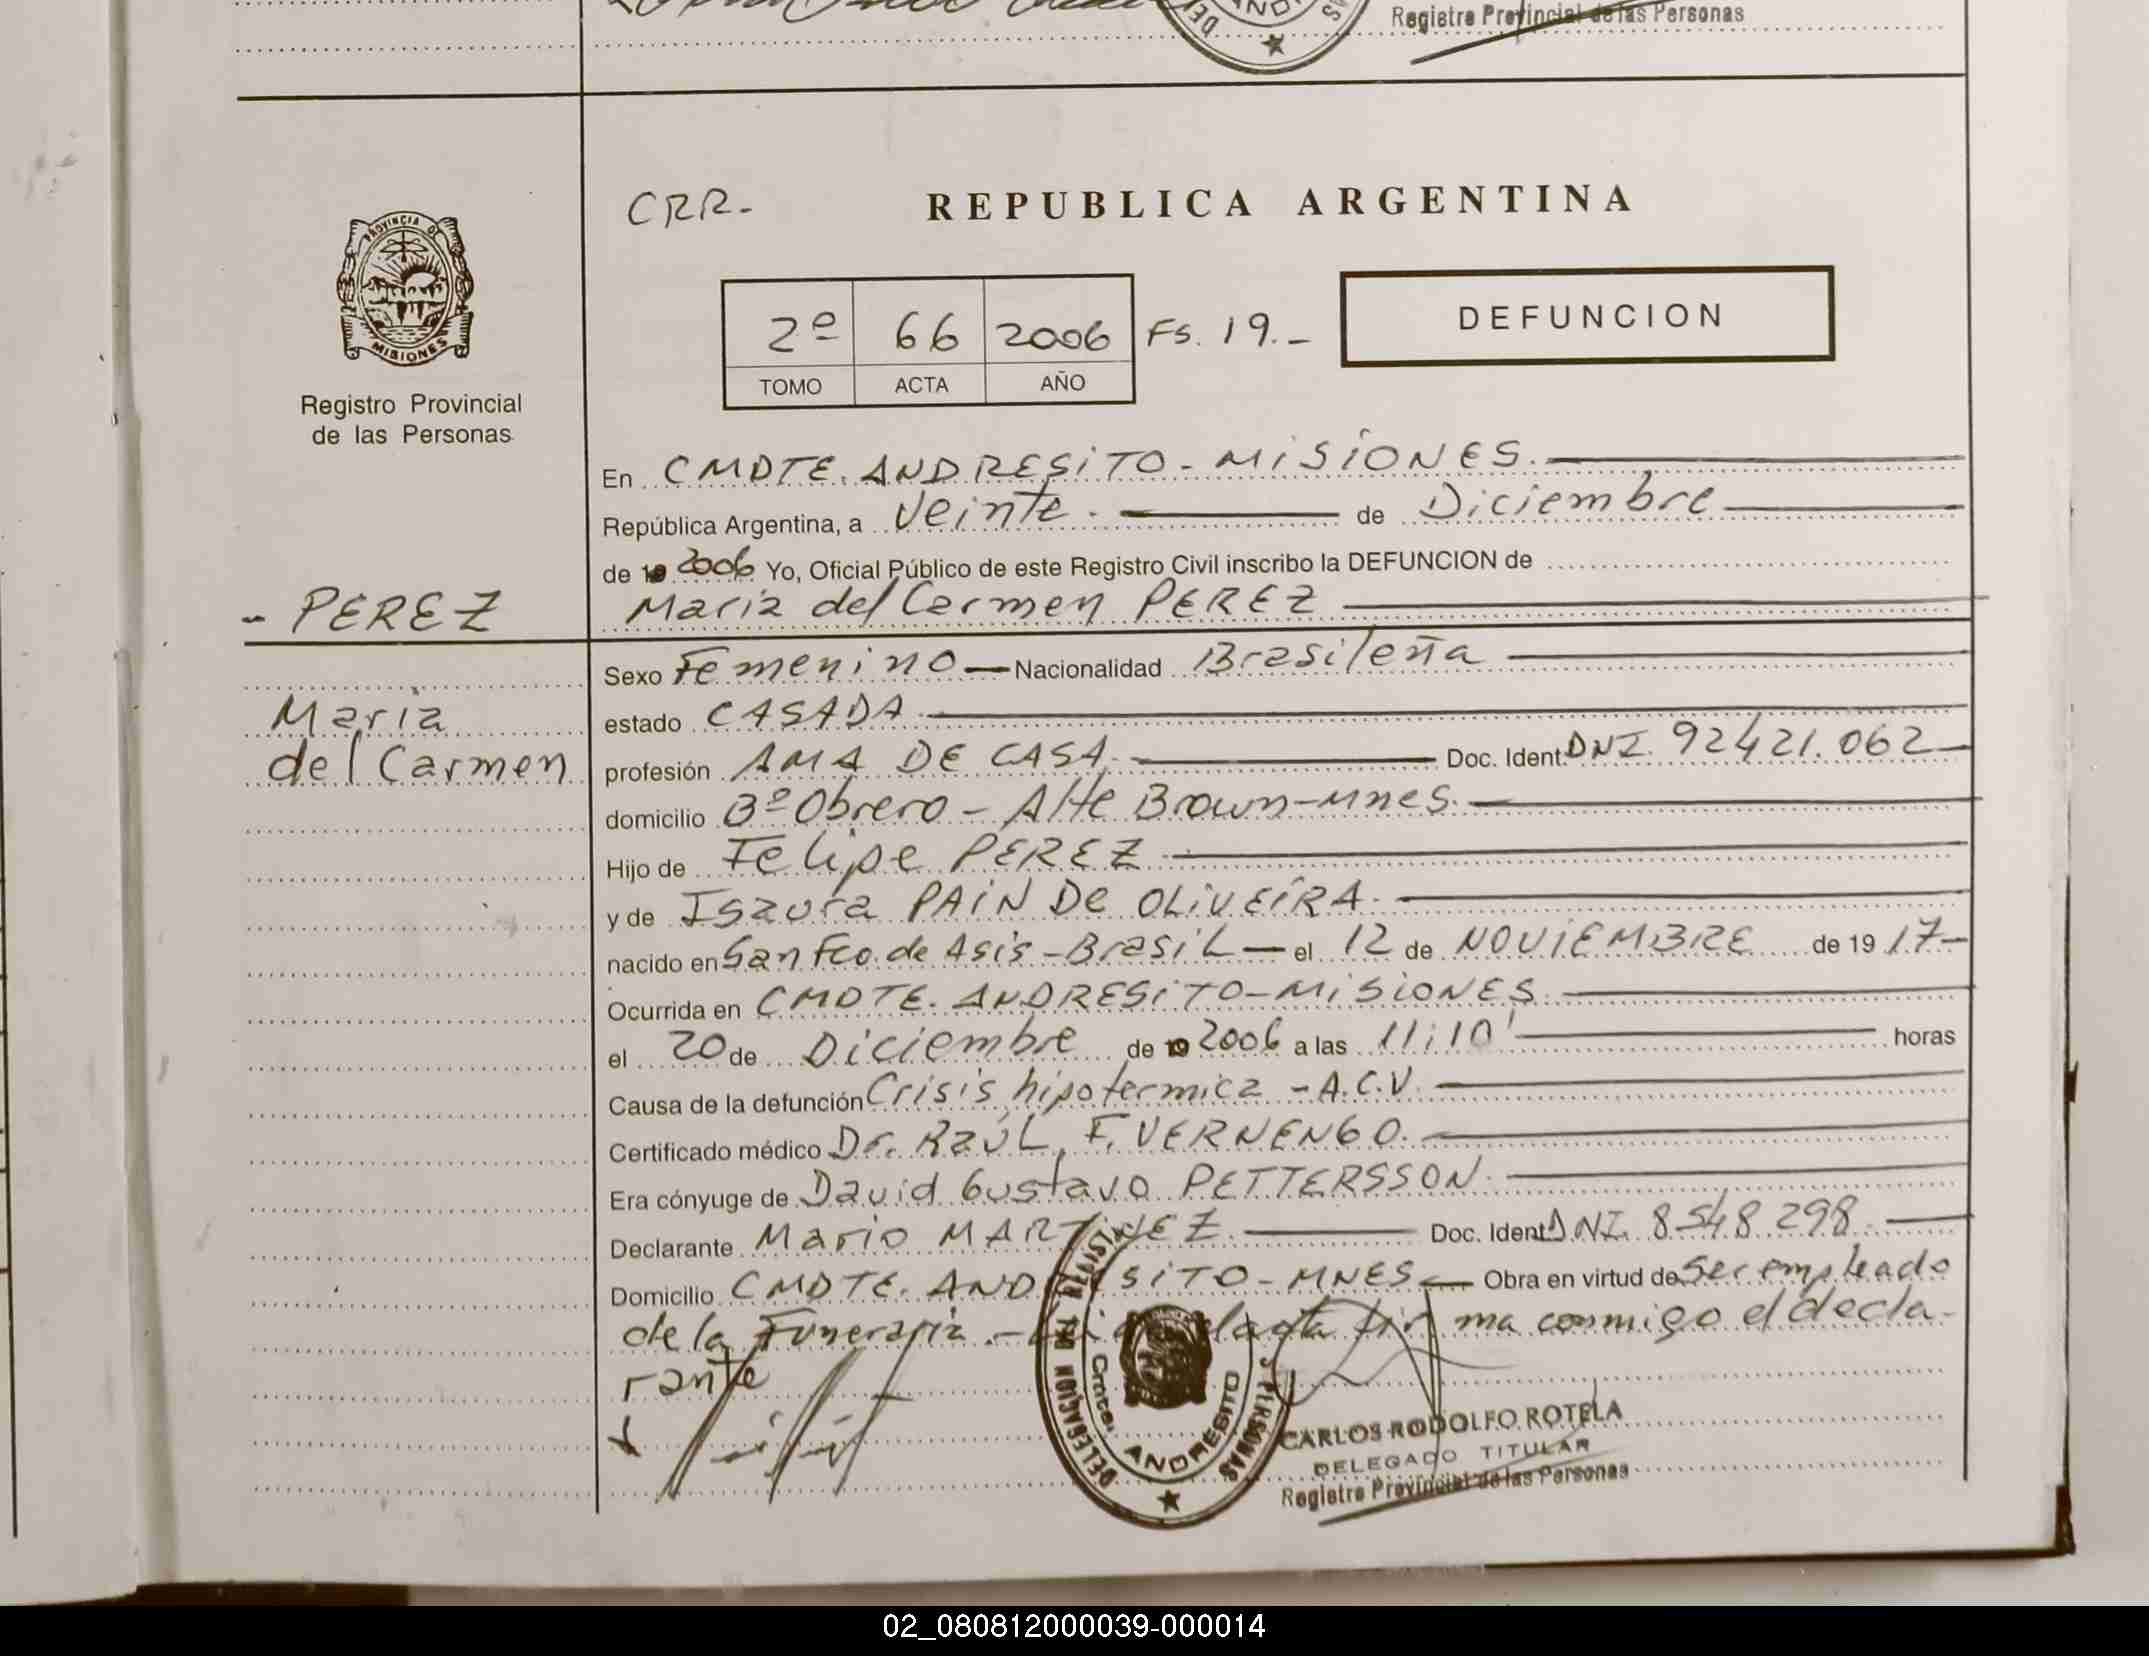 Registro Provincial de las Personas
PROVINCIA DE
MISIONES
Registro Provincial
de las Personas
- PEREZ
Maria
del Carmen
CRR.-
REPUBLICA ARGENTINA
2º 66 2006 Fs. 19.-
TOMO ACTA AÑO
DEFUNCION
En CMDTE. ANDRESITO - MISIONES.
República Argentina, a veinte. de Diciembre
de 19 2006 Yo, Oficial Público de este Registro Civil inscribo la DEFUNCION de
Maria del Carmen PEREZ
Sexo Femenino Nacionalidad Brasileña
estado CASADA
profesión AMA DE CASA. Doc. Ident. DNI. 92421.062
domicilio Bº Obrero - Alte Brown - Mnes.
Hijo de Felipe PEREZ
y de Isaura PAIN De OLIVEIRA.
nacido en San Fco. de Asis - Brasil el 12 de NOVIEMBRE de 19 17-
Ocurrida en CMDTE. ANDRESITO - MISIONES
el 20 de Diciembre de 19 2006 a las 11:10' horas
Causa de la defunción Crisis hipotermica - A.C.V.
Certificado médico Dr. Raúl F. VERNENGO.
Era cónyuge de David Gustavo PETTERSSON.
Declarante Mario MARTINEZ. Doc. Ident. DNI. 8548.298.
Domicilio CMDTE. ANDRESITO - MNES. Obra en virtud de ser empleado
de la Funeraria.- acta firma conmigo el decla-
rante
DELEGACION DEL REGIST PERSONAS
Cmte. ANDRESITO
CARLOS RODOLFO ROTELA
DELEGADO TITULAR
Registro Provincial de las Personas
02_080812000039-000014